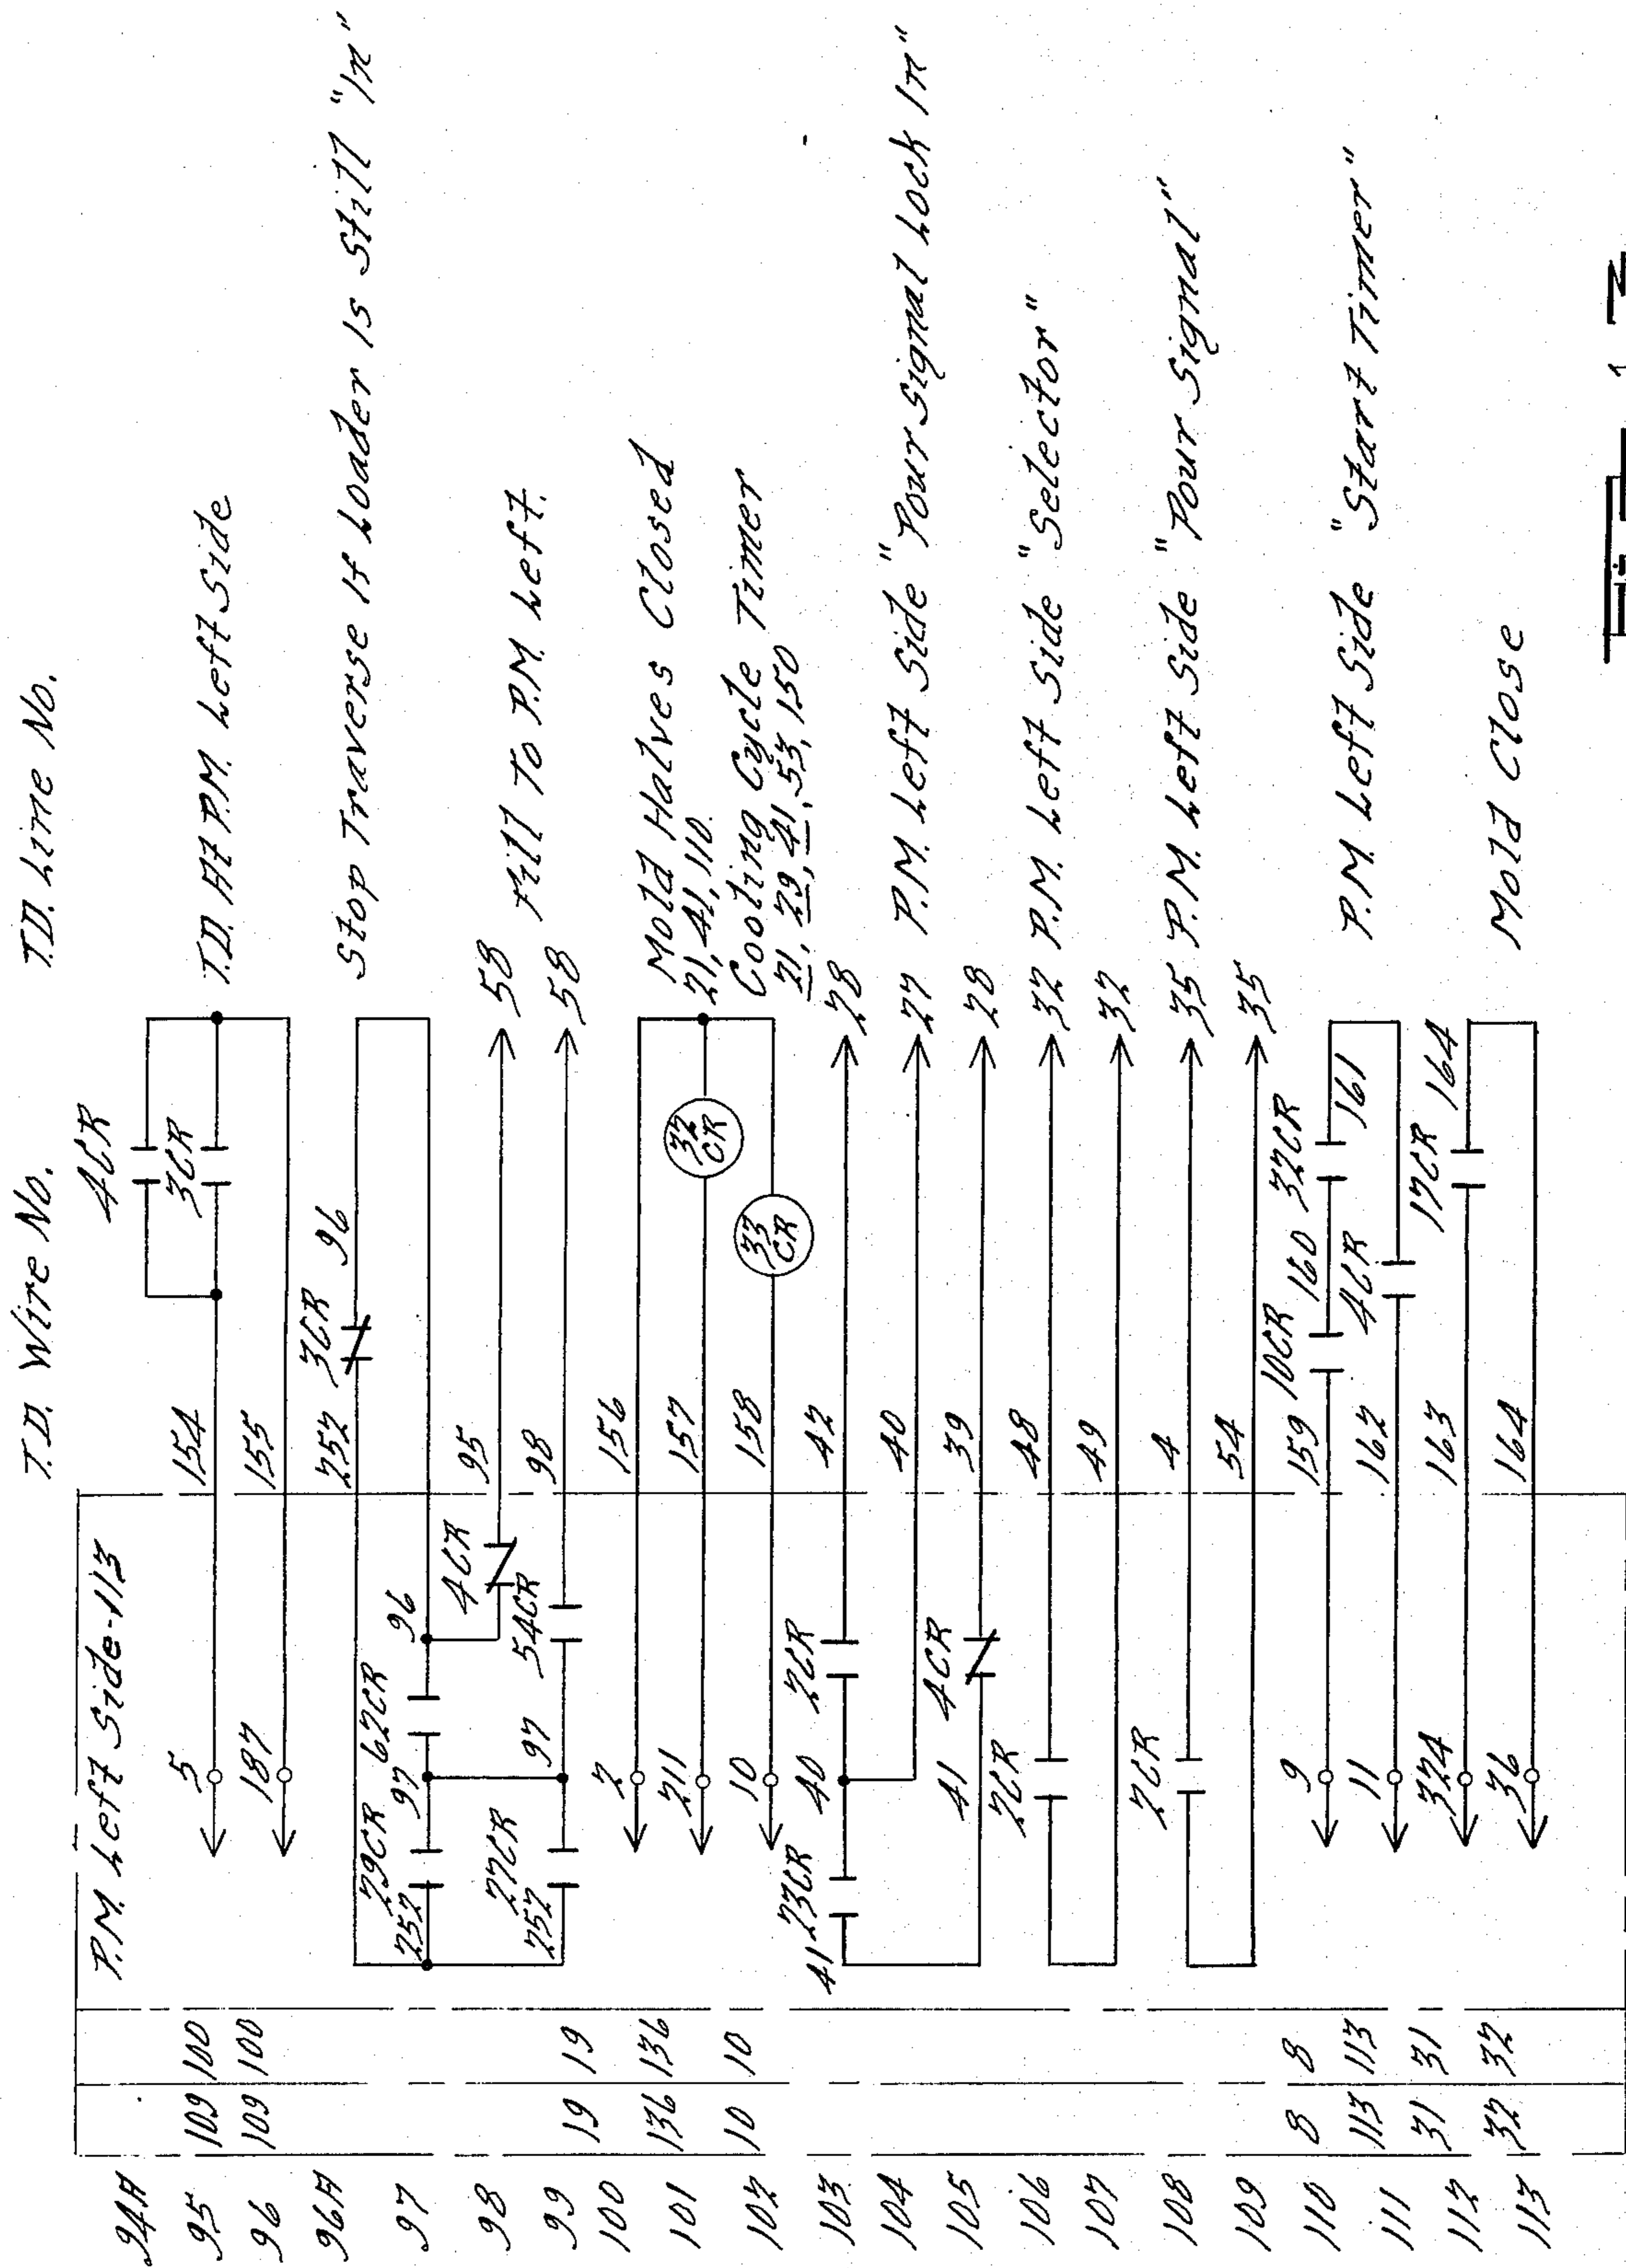 T.D. Wire No.
T.D. Line No.
P.M. Left Side-113
94A
4CR
95 109 100 5 154 3CR T.D. At P.M. Left Side
96 109 100 187 155
96A 252 3CR 96 Stop Traverse If Loader Is Still "In"
97 252 29CR 97 62CR 96
98 4CR 95 58 Fill To P.M. Left.
99 252 27CR 97 54CR 98 58
100 19 19 2 156
101 136 136 211 157 32 CR Mold Halves Closed
21, 41, 110.
102 10 10 10 158 33 CR Cooling Cycle Timer
21, 29, 41, 53, 150
103 41 23CR 40 2CR 42 28
104 40 27 P.M. Left Side "Pour Signal Lock In"
105 41 4CR 39 28
106 2CR 48 32 P.M. Left Side "Selector"
107 49 32
108 2CR 4 35 P.M. Left Side "Pour Signal"
109 54 35
110 8 8 9 159 10CR 160 32CR 161
111 113 113 11 162 4CR P.M. Left Side "Start Timer"
112 31 31 324 163 17CR 164
113 32 32 36 164 Mold Close